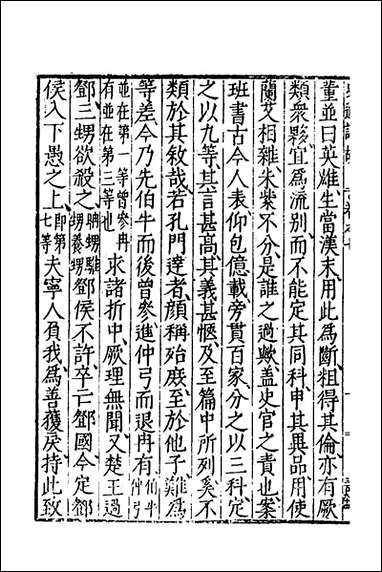 董並曰英雄生當漢末用此為斷粗得其倫亦有厥
類衆夥宜為流别而不能定其同科申其異品用使
蘭艾相雜朱紫不分是誰之過歟蓋史官之責也案
班書古今人表仰包億載旁貫百家分之以三科定
之以九等其言甚高其義甚愜及至篇中所列奚不
類於其敘哉若孔門達者顔稱殆庶至於他子難為
等差今乃先伯牛而後曾參進仲弓而退冉有伯牛仲弓
並在第一等曾參冉有並在第三等也求諸折中厥理無聞又楚王過
鄧三甥欲殺之騅甥聃甥養甥鄧侯不許卒亡鄧國今定鄧
侯入下愚之上即第七等夫寧人負我為善獲戾持此致